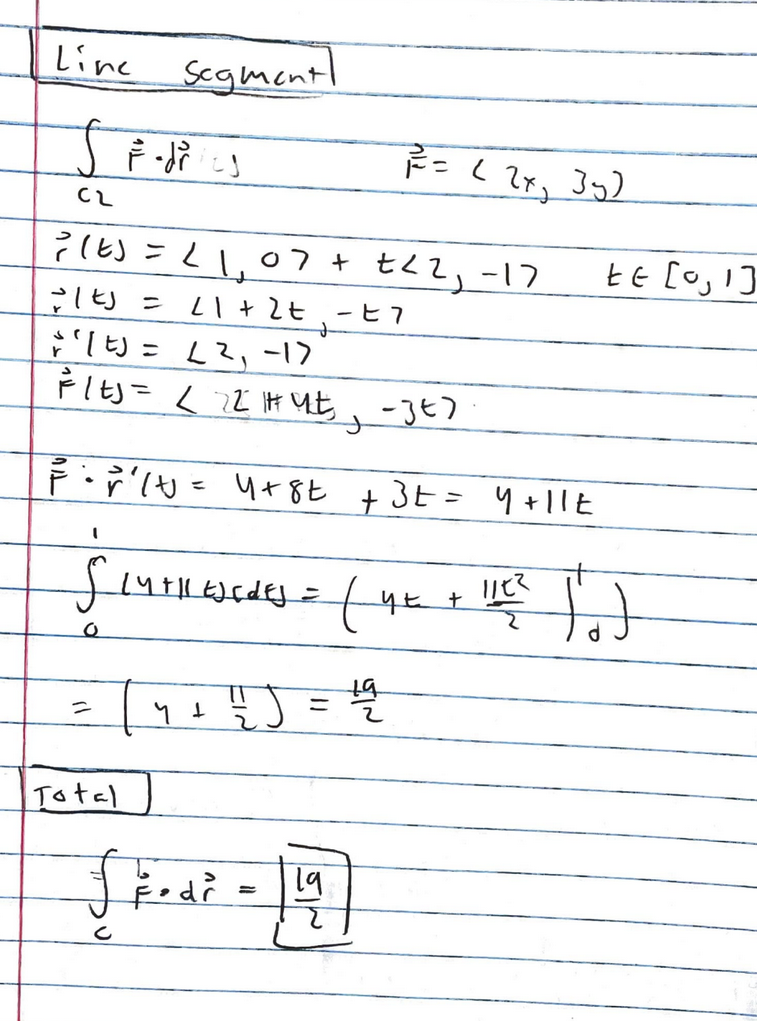 Line Segment
∫_{C2} F⃗ · dr⃗    F⃗ = < 2x, 3y>
r⃗(t) = <1, 0> + t<2, -1>    t ∈ [0, 1]
r⃗(t) = <1 + 2t, -t>
r⃗'(t) = <2, -1>
F⃗(t) = < 2 + 4t, -3t>
F⃗ · r⃗'(t) = 4 + 8t + 3t = 4 + 11t
∫_0^1 (4 + 11t)(dt) = ( 4t + 11t²/2 |_0^1 )
= ( 4 + 11/2 ) = 19/2
Total
∫_C F⃗ · dr⃗ = 19/2